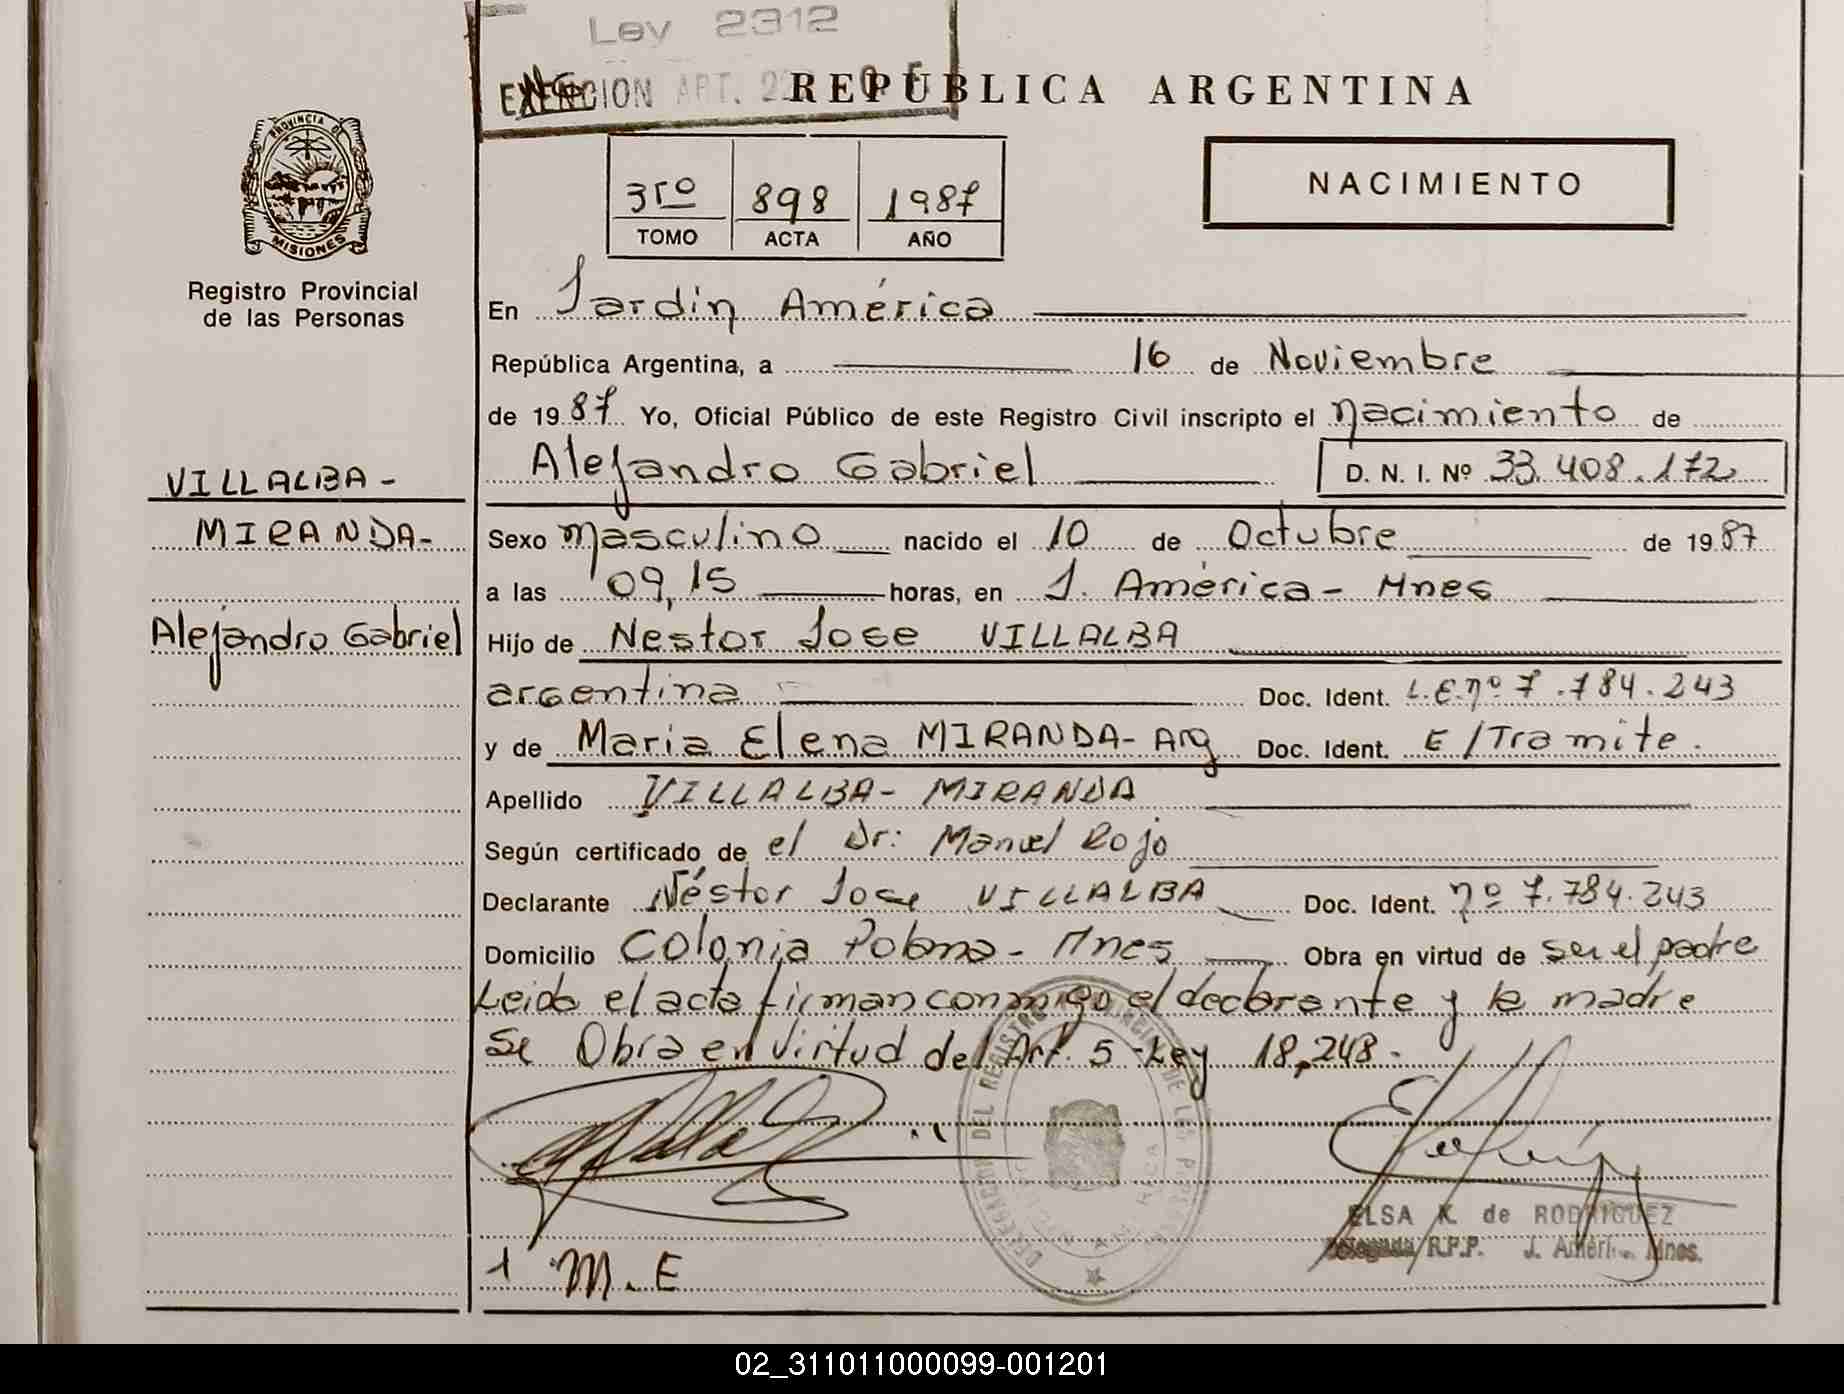 Ley 2312
EXENCION ART.
REPUBLICA ARGENTINA
PROVINCIA DE
MISIONES
Registro Provincial
de las Personas
3ro 898 1987
TOMO ACTA AÑO
NACIMIENTO
En Jardin América
República Argentina, a 16 de Noviembre
de 1987 Yo, Oficial Público de este Registro Civil inscripto el nacimiento de
Alejandro Gabriel D. N. I. Nº 33.408.172
VILLALBA-
MIRANDA-
Alejandro Gabriel
Sexo masculino nacido el 10 de Octubre de 1987
a las 09,15 horas, en J. América - Mnes
Hijo de Nestor Jose VILLALBA
argentina Doc. Ident. L.E.nº 7.784.243
y de Maria Elena MIRANDA- Arg Doc. Ident. E/Tramite.
Apellido VILLALBA- MIRANDA
Según certificado de el Dr: Manuel Rojo
Declarante Néstor Jose VILLALBA Doc. Ident. nº 7.784.243
Domicilio Colonia Polana - Mnes Obra en virtud de ser el padre
Leida el acta firman conmigo el declarante y la madre
Se Obra en virtud del Art. 5 -Ley 18,248.
DELEGACION DEL REGISTRO PROVINCIAL DE LAS PERSONAS
ELSA K. de RODRIGUEZ
Delegada R.P.P. J. Améri. Mnes.
M.E
02_311011000099-001201